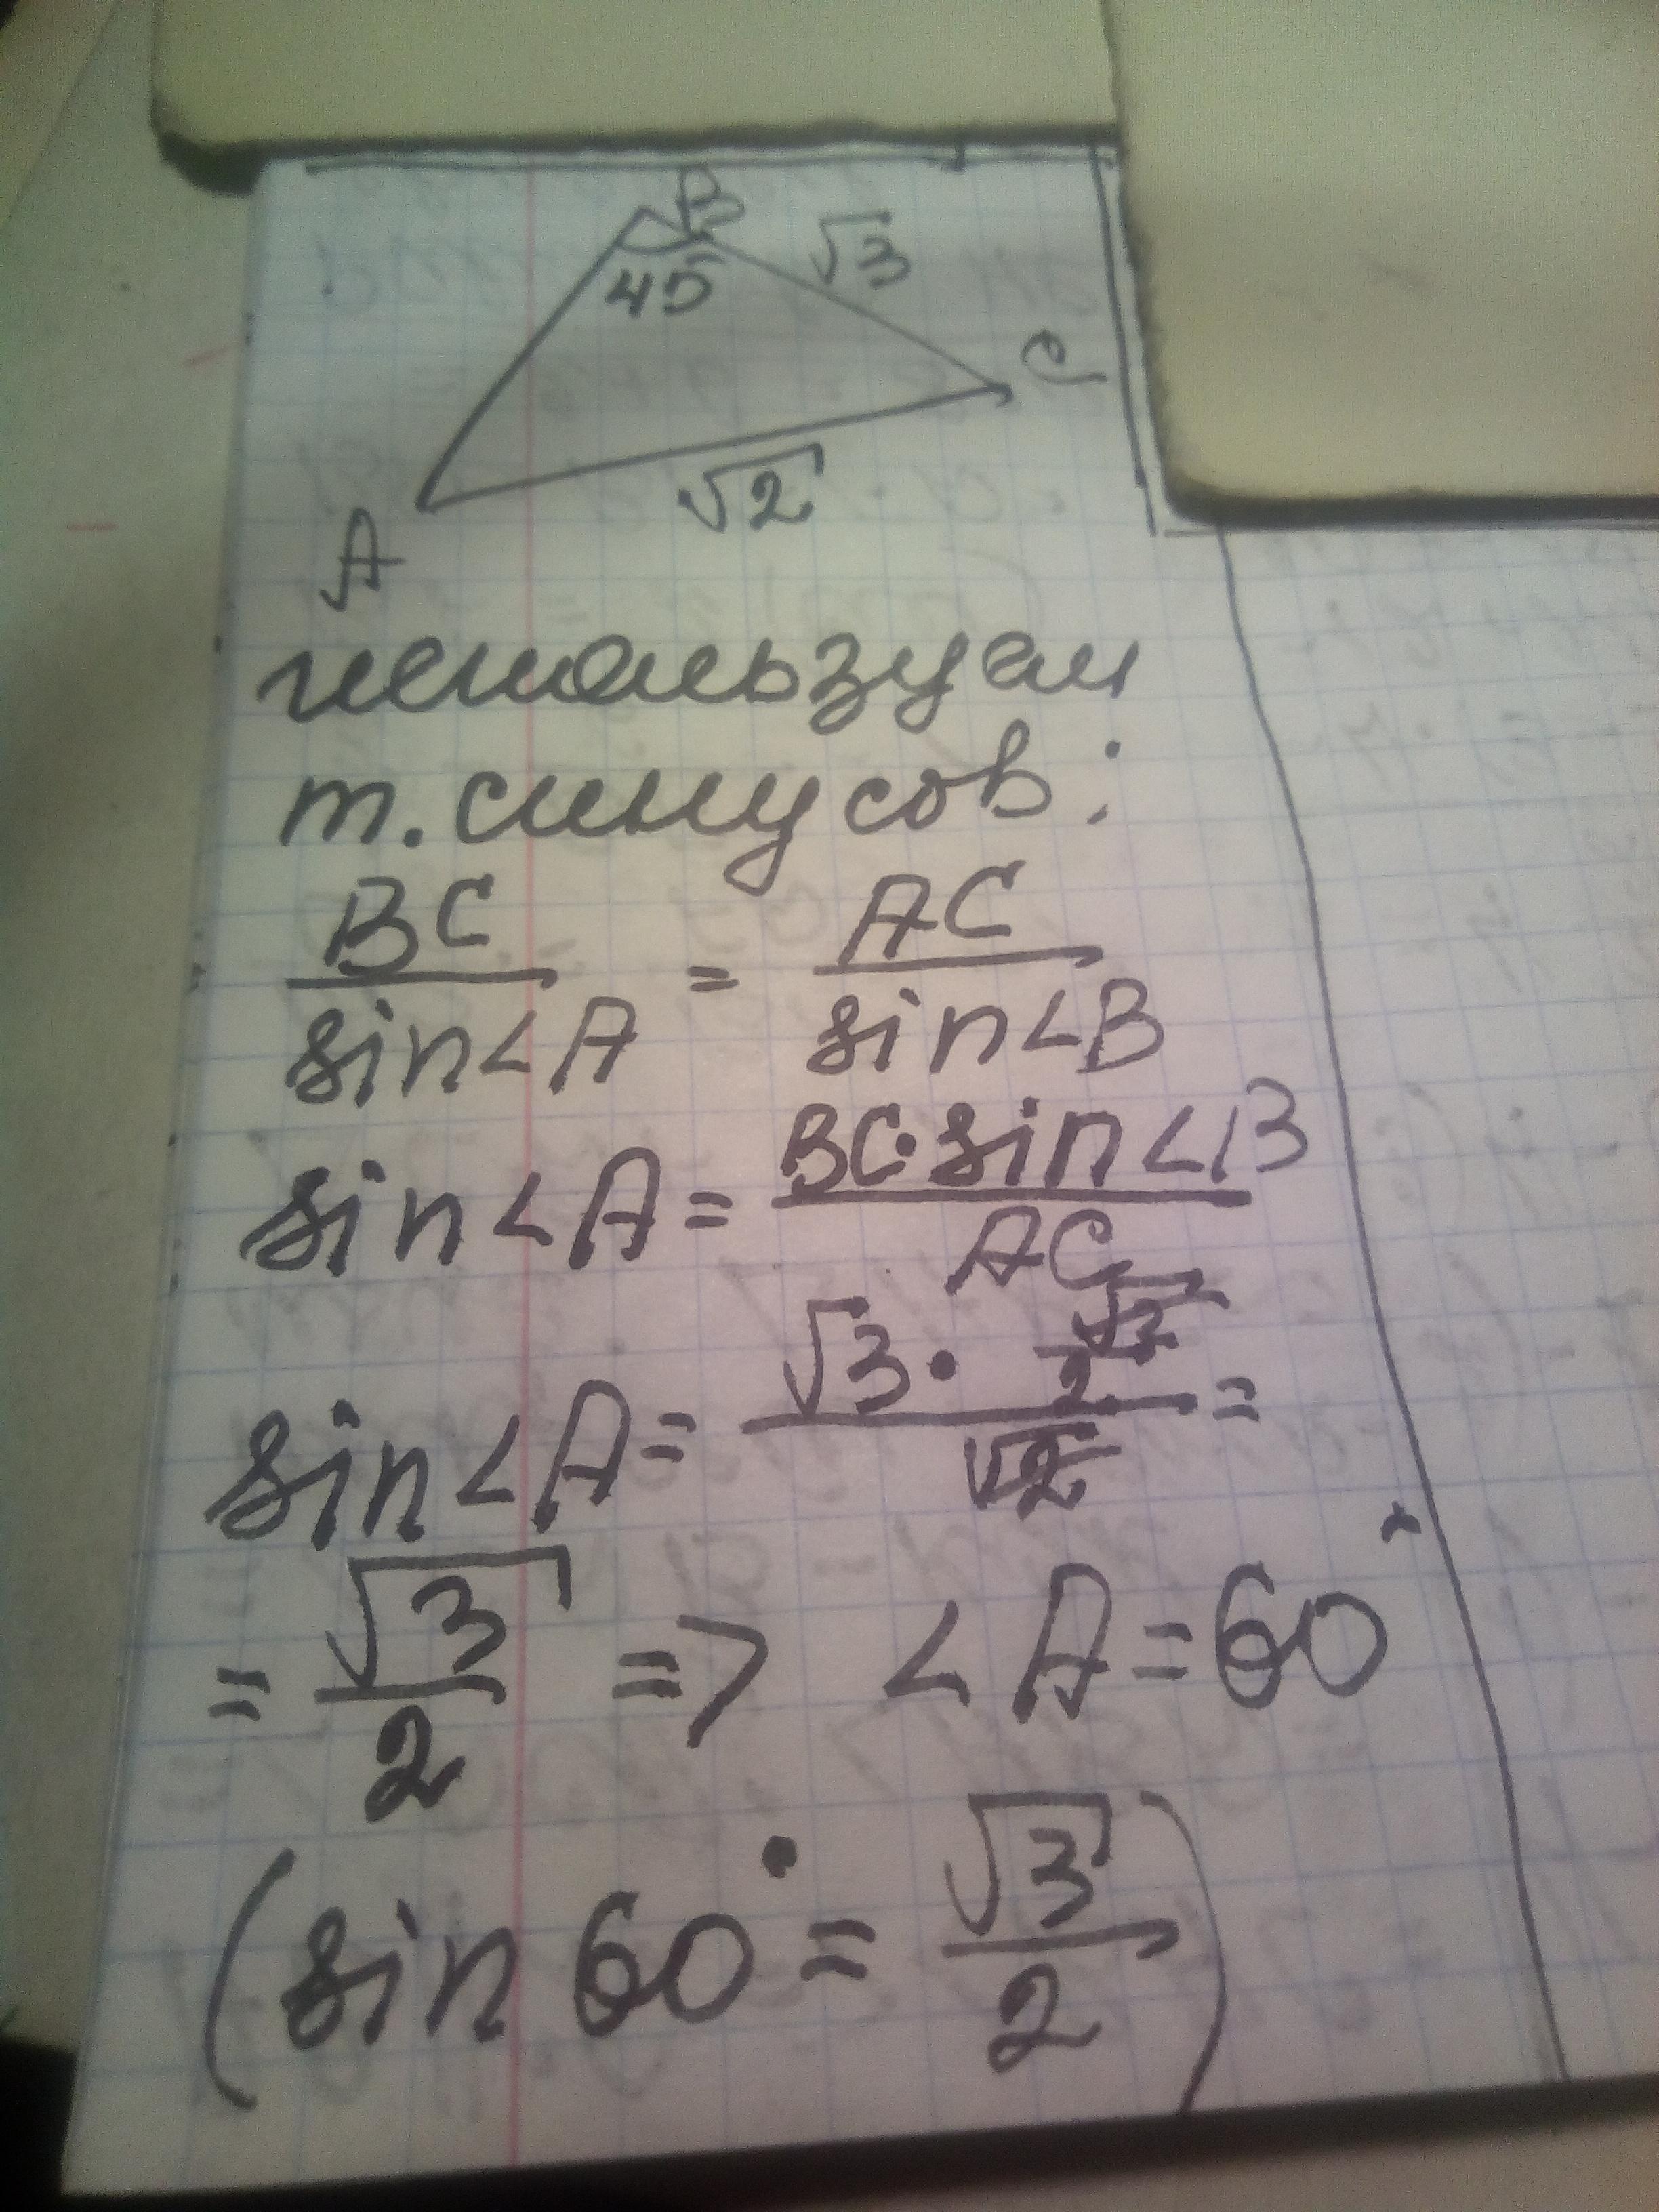 B
√3
45
C
√2
A
используем
т. синусов:
BC/sin∠A = AC/sin∠B
sin∠A = BC·sin∠B/AC
sin∠A = (√3·√2/2)/√2 =
= √3/2 => ∠A=60°
(sin60° = √3/2)